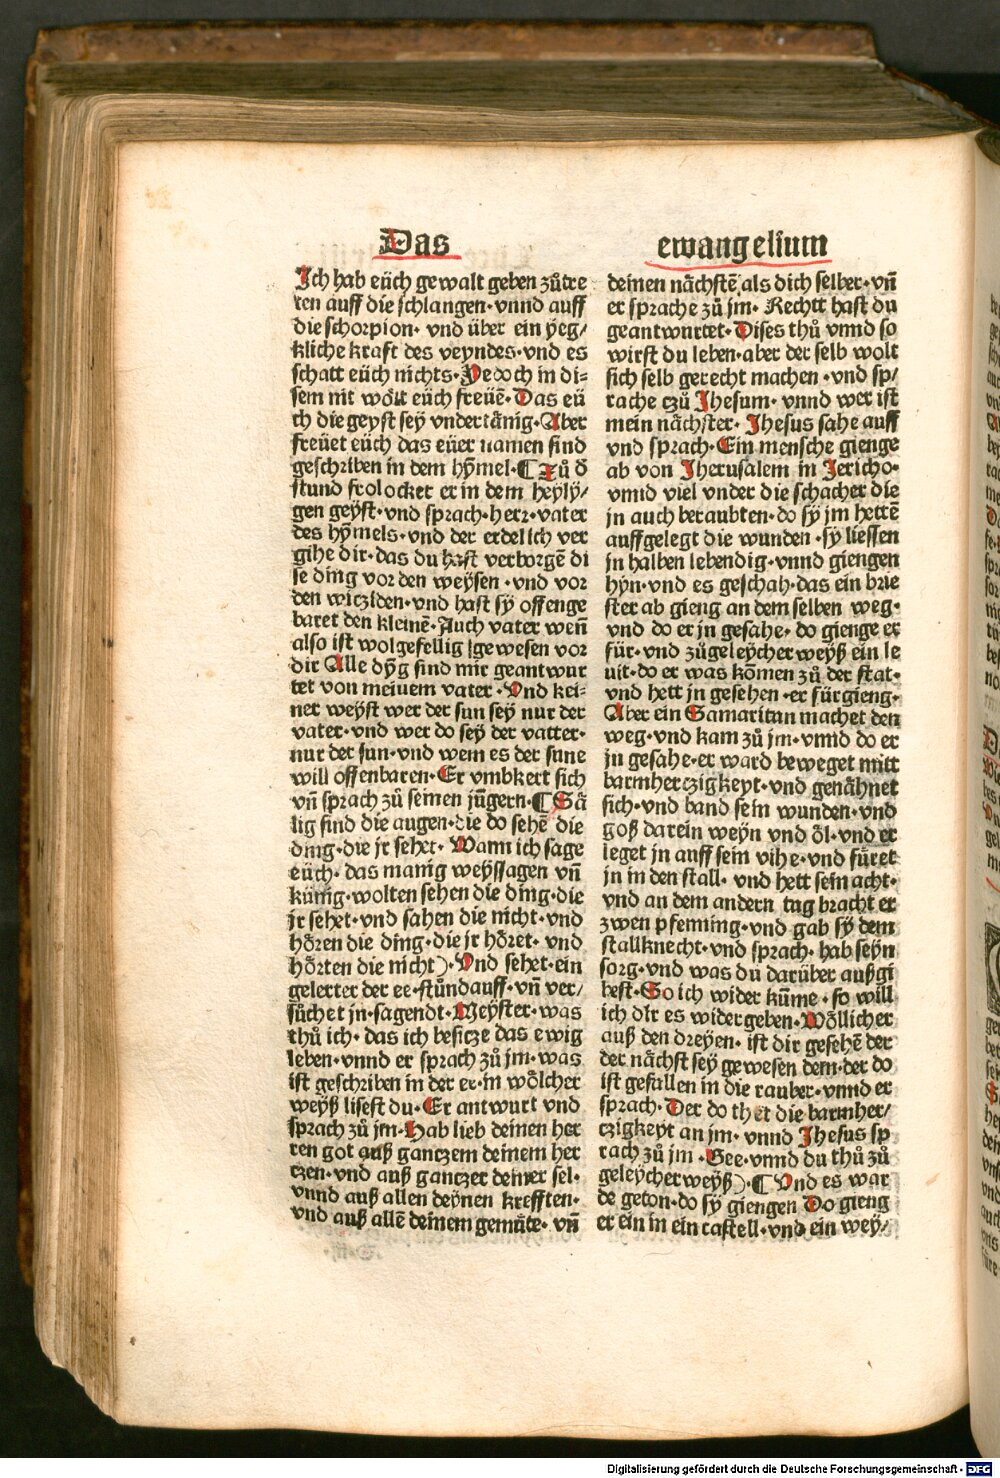 Das
ewangelium
Ich hab eüch gewalt geben zůtre
ten auff die schlangen·vnnd auff
die schorpion· vnd über ein yeg/
kliche kraft des veyndes·vnd es
schatt eüch nichts·Yedoch in di=
sem nit wöllt eüch freüē·Das eü
ch die geyst sey vndertänig·Aber
freüet eüch das eüer namen sind
geschriben in dem hȳmel·¶Zů d̄
stund frolocket er in dem heyly/
gen geyst·vnd sprach·herr·vater
des hȳmels·vnd der erdel ich ver
gihe dir·das du hast verborgē di
se ding vor den weysen ·vnd vor
den witzlden·vnd hast sy offenge
baret den kleinē·Auch vater weñ
also ist wolgefellig lgewesen vor
dir Alle dyg sind mir geantwur
tet von meinem vater ·Vnd kei=
ner weyst wer der sun sey nur der
vater·vnd wer do sey der vatter·
nur der sun·vnd wem es der sune
will offenbaren·Er vmbkert sich
vñ sprach zů seinen jūgern·¶Sä
lig sind die augen·die do sehē die
ding·die jr sehet· Wann ich sage
eüch· das manig weyssagen vñ
künig·wolten sehen die ding·die
jr sehet·vnd sahen die nicht·vnd
hören die ding·die jr höret· vnd
hörten die nicht)·Vnd sehet·ein
gelerter der ee·stůndauff·vñ ver/
sůchet jn·sagendt·Meyster·was
thů ich· das ich besitze das ewig
leben·vnnd er sprach zů jm·was
ist geschriben in der ee·in wölcher
weyß lisest du·Er antwurt vnd
sprach zů jm·Hab lieb deinen her
ren got auß gantzem deinem her
tzen·vnd auß gantzer deiner sel·
vnnd auß allen deynen krefften·
vnd auß allē deinem gemüte· vñ
deinen nächstē als dich selber·vñ
er sprache zů jm· Rechtt hast du
geantwurtet·Dises thů vnnd so
wirst du leben·aber der selb wolt
sich selb gerecht machen ·vnd sp/
rache tzů Jhesum· vnnd wer ist
mein nächster· Jhesus sahe auff
vnd sprach·Ein mensche gienge
ab von Jherusalem in Jericho·
vnnd viel vnder die schacher die
jn auch beraubten·do sy jm hettē
auffgelegt die wunden·sy liessen
jn halben lebendig·vnnd giengen
hyn·vnd es geschah·das ein brie
ster ab gieng an dem selben weg·
vnd do er jn gesahe· do gienge er
für·vnd zůgeleycher weyß ein le
uit·do er was kōmen zů der stat·
vnd hett jn gesehen ·er fürgieng·
Aber ein Samaritan machet den
weg·vnd kam zů jm·vnnd do er
jn gesahe·er ward beweget mitt
barmhertzigkeyt·vnd genähnet
sich·vnd band sein wunden·vnd
goß darein weyn vnd öl·vnd er
leget jn auff sein vihe·vnd füret
jn in den stall· vnd hett sein acht·
vnd an dem andern tag bracht er
zwen pfenning·vnd gab sy dem
stallknecht·vnd sprach· hab seyn
sorg·vnd was du darüber außgi
best·So ich wider küme · so will
ich dir es wider geben·Wöllicher
auß den dreyen· ist dir gesehē der
der nächst sey gewesen dem·der do
ist gefallen in die rauber·vnnd er
sprach·Der do thet die barmher/
tzigkeyt an jm· vnnd Jhesus sp
rach zů jm ·Gee·vnnd du thů zů
geleycher weyß)·¶Vnd es war
de geton·do sy giengen Do gieng
er ein in ein castell·vnd ein wey/
Digitalisierung gefördert durch die Deutsche Forschungsgemeinschaft - DFG